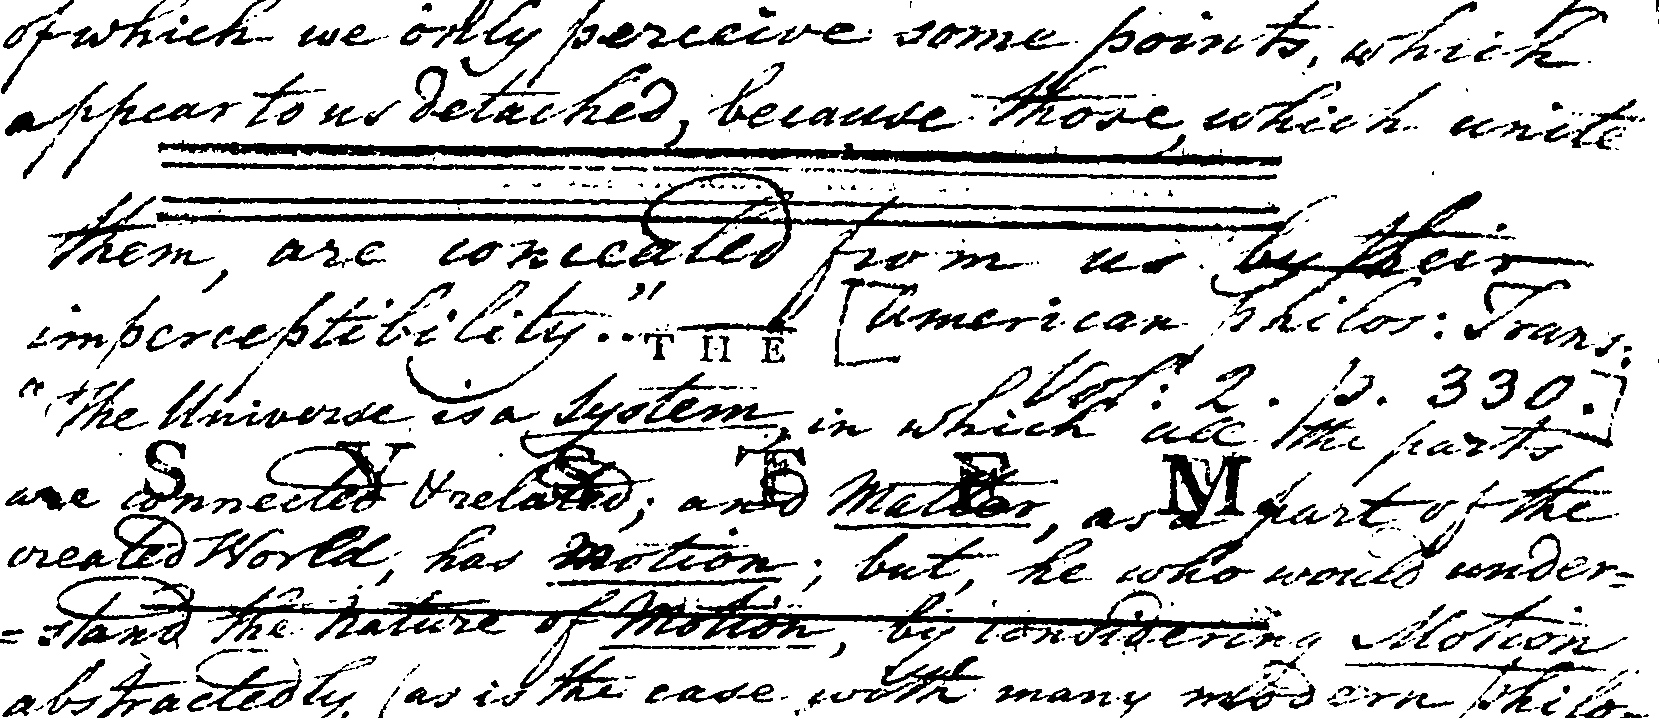 of which we only perceive some points, which
appear to us detached, because those, which unite
them, are concealed from us by their
imperceptibility." [American philos: Trans:
THE
Vol: 2. p. 330.]
"The Universe is a system, in which all the parts
SYSTEM
are connected & related; and Matter, as a part of the
created World, has motion; but, he who would under=
=stand the nature of Motion, by considering Motion
abstractedly, (as is the case with many modern philo=